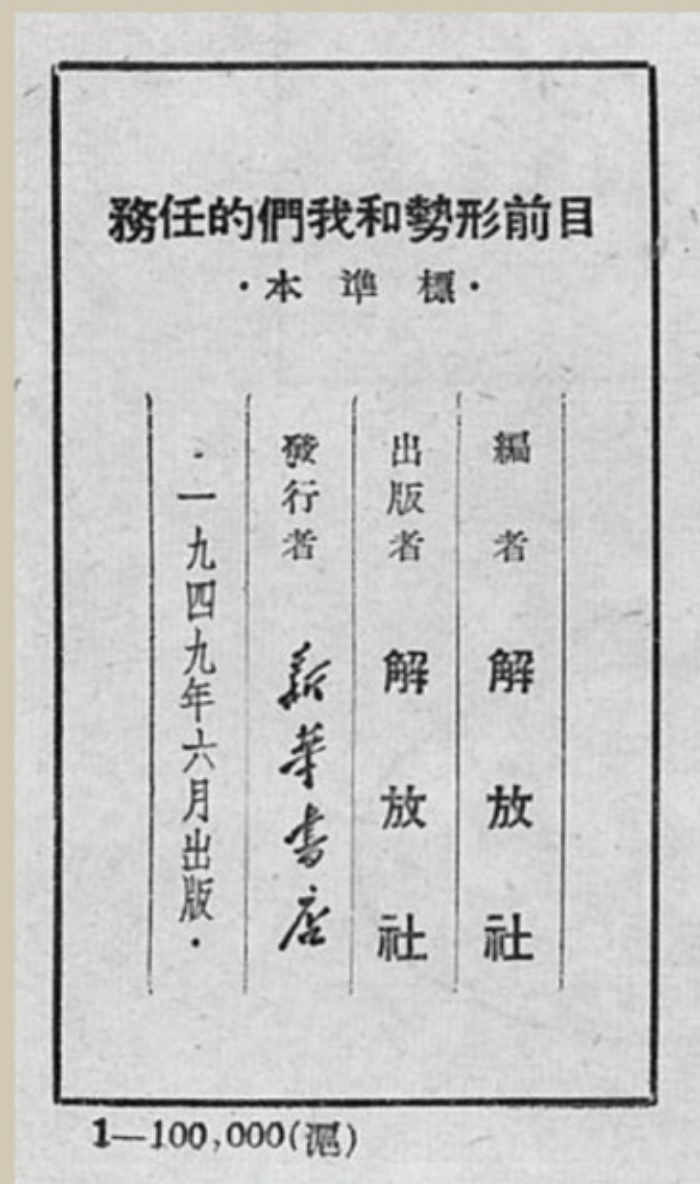 目前形勢和我們的任務
·標準本·
編者 解放社
出版者 解放社
發行者 新華書店
·一九四九年六月出版·
1—100,000(滬)